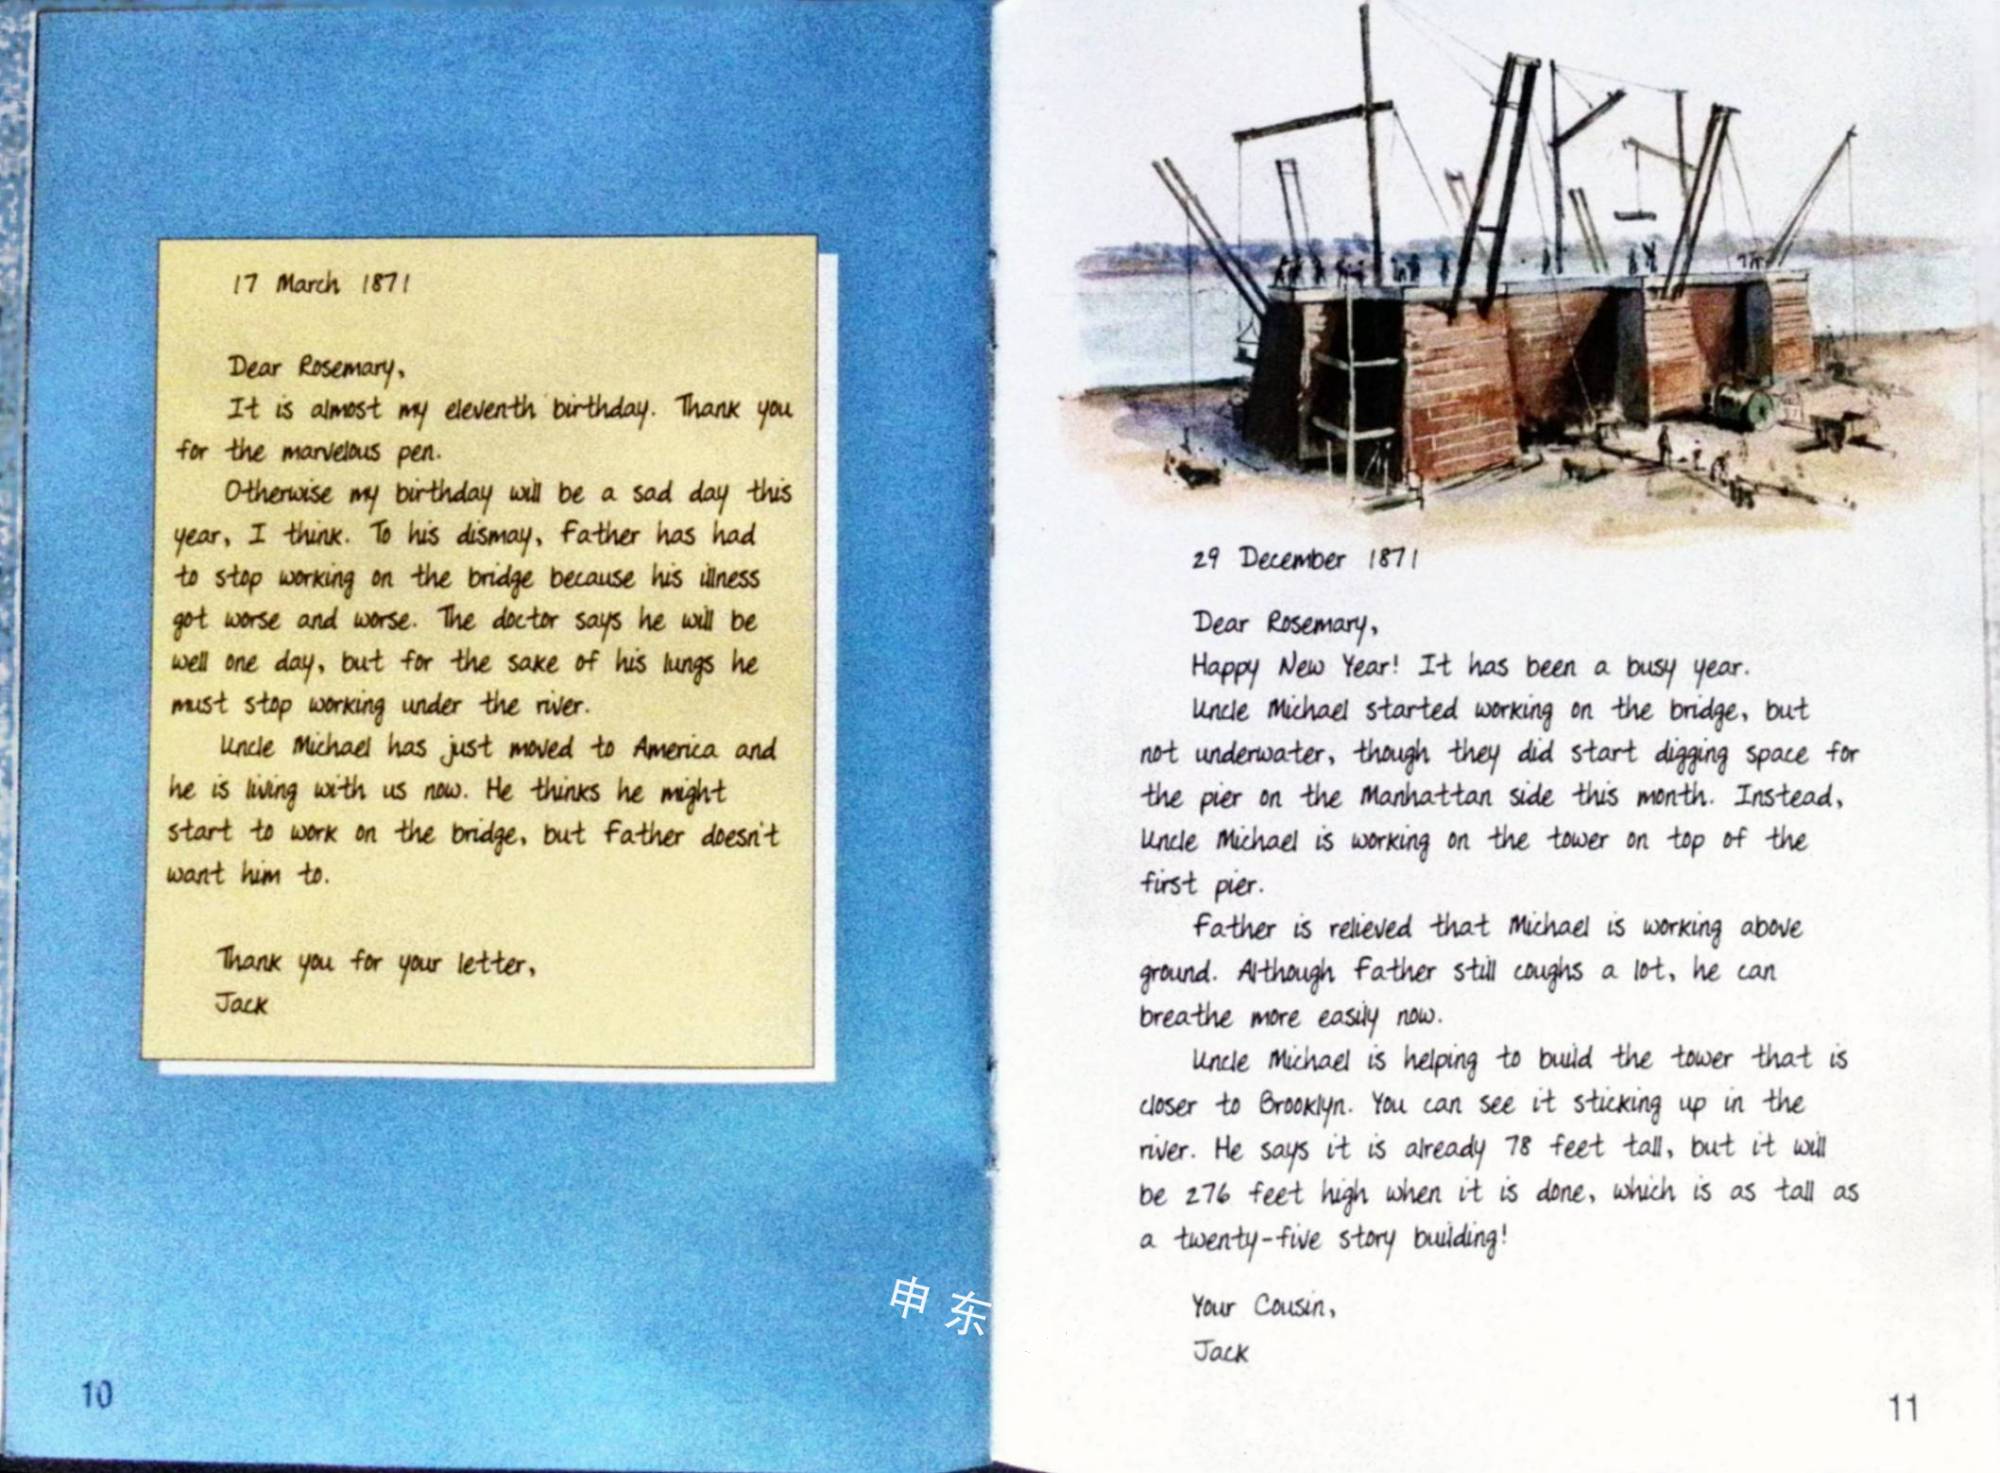 17 March 1871
Dear Rosemary,
It is almost my eleventh birthday. Thank you
for the marvelous pen.
Otherwise my birthday will be a sad day this
year, I think. To his dismay, Father has had
to stop working on the bridge because his illness
got worse and worse. The doctor says he will be
well one day, but for the sake of his lungs he
must stop working under the river.
Uncle Michael has just moved to America and
he is living with us now. He thinks he might
start to work on the bridge, but Father doesn't
want him to.
Thank you for your letter,
Jack
申东
10
29 December 1871
Dear Rosemary,
Happy New Year! It has been a busy year.
Uncle Michael started working on the bridge, but
not underwater, though they did start digging space for
the pier on the Manhattan side this month. Instead,
Uncle Michael is working on the tower on top of the
first pier.
Father is relieved that Michael is working above
ground. Although Father still coughs a lot, he can
breathe more easily now.
Uncle Michael is helping to build the tower that is
closer to Brooklyn. You can see it sticking up in the
river. He says it is already 78 feet tall, but it will
be 276 feet high when it is done, which is as tall as
a twenty-five story building!
Your Cousin,
Jack
11